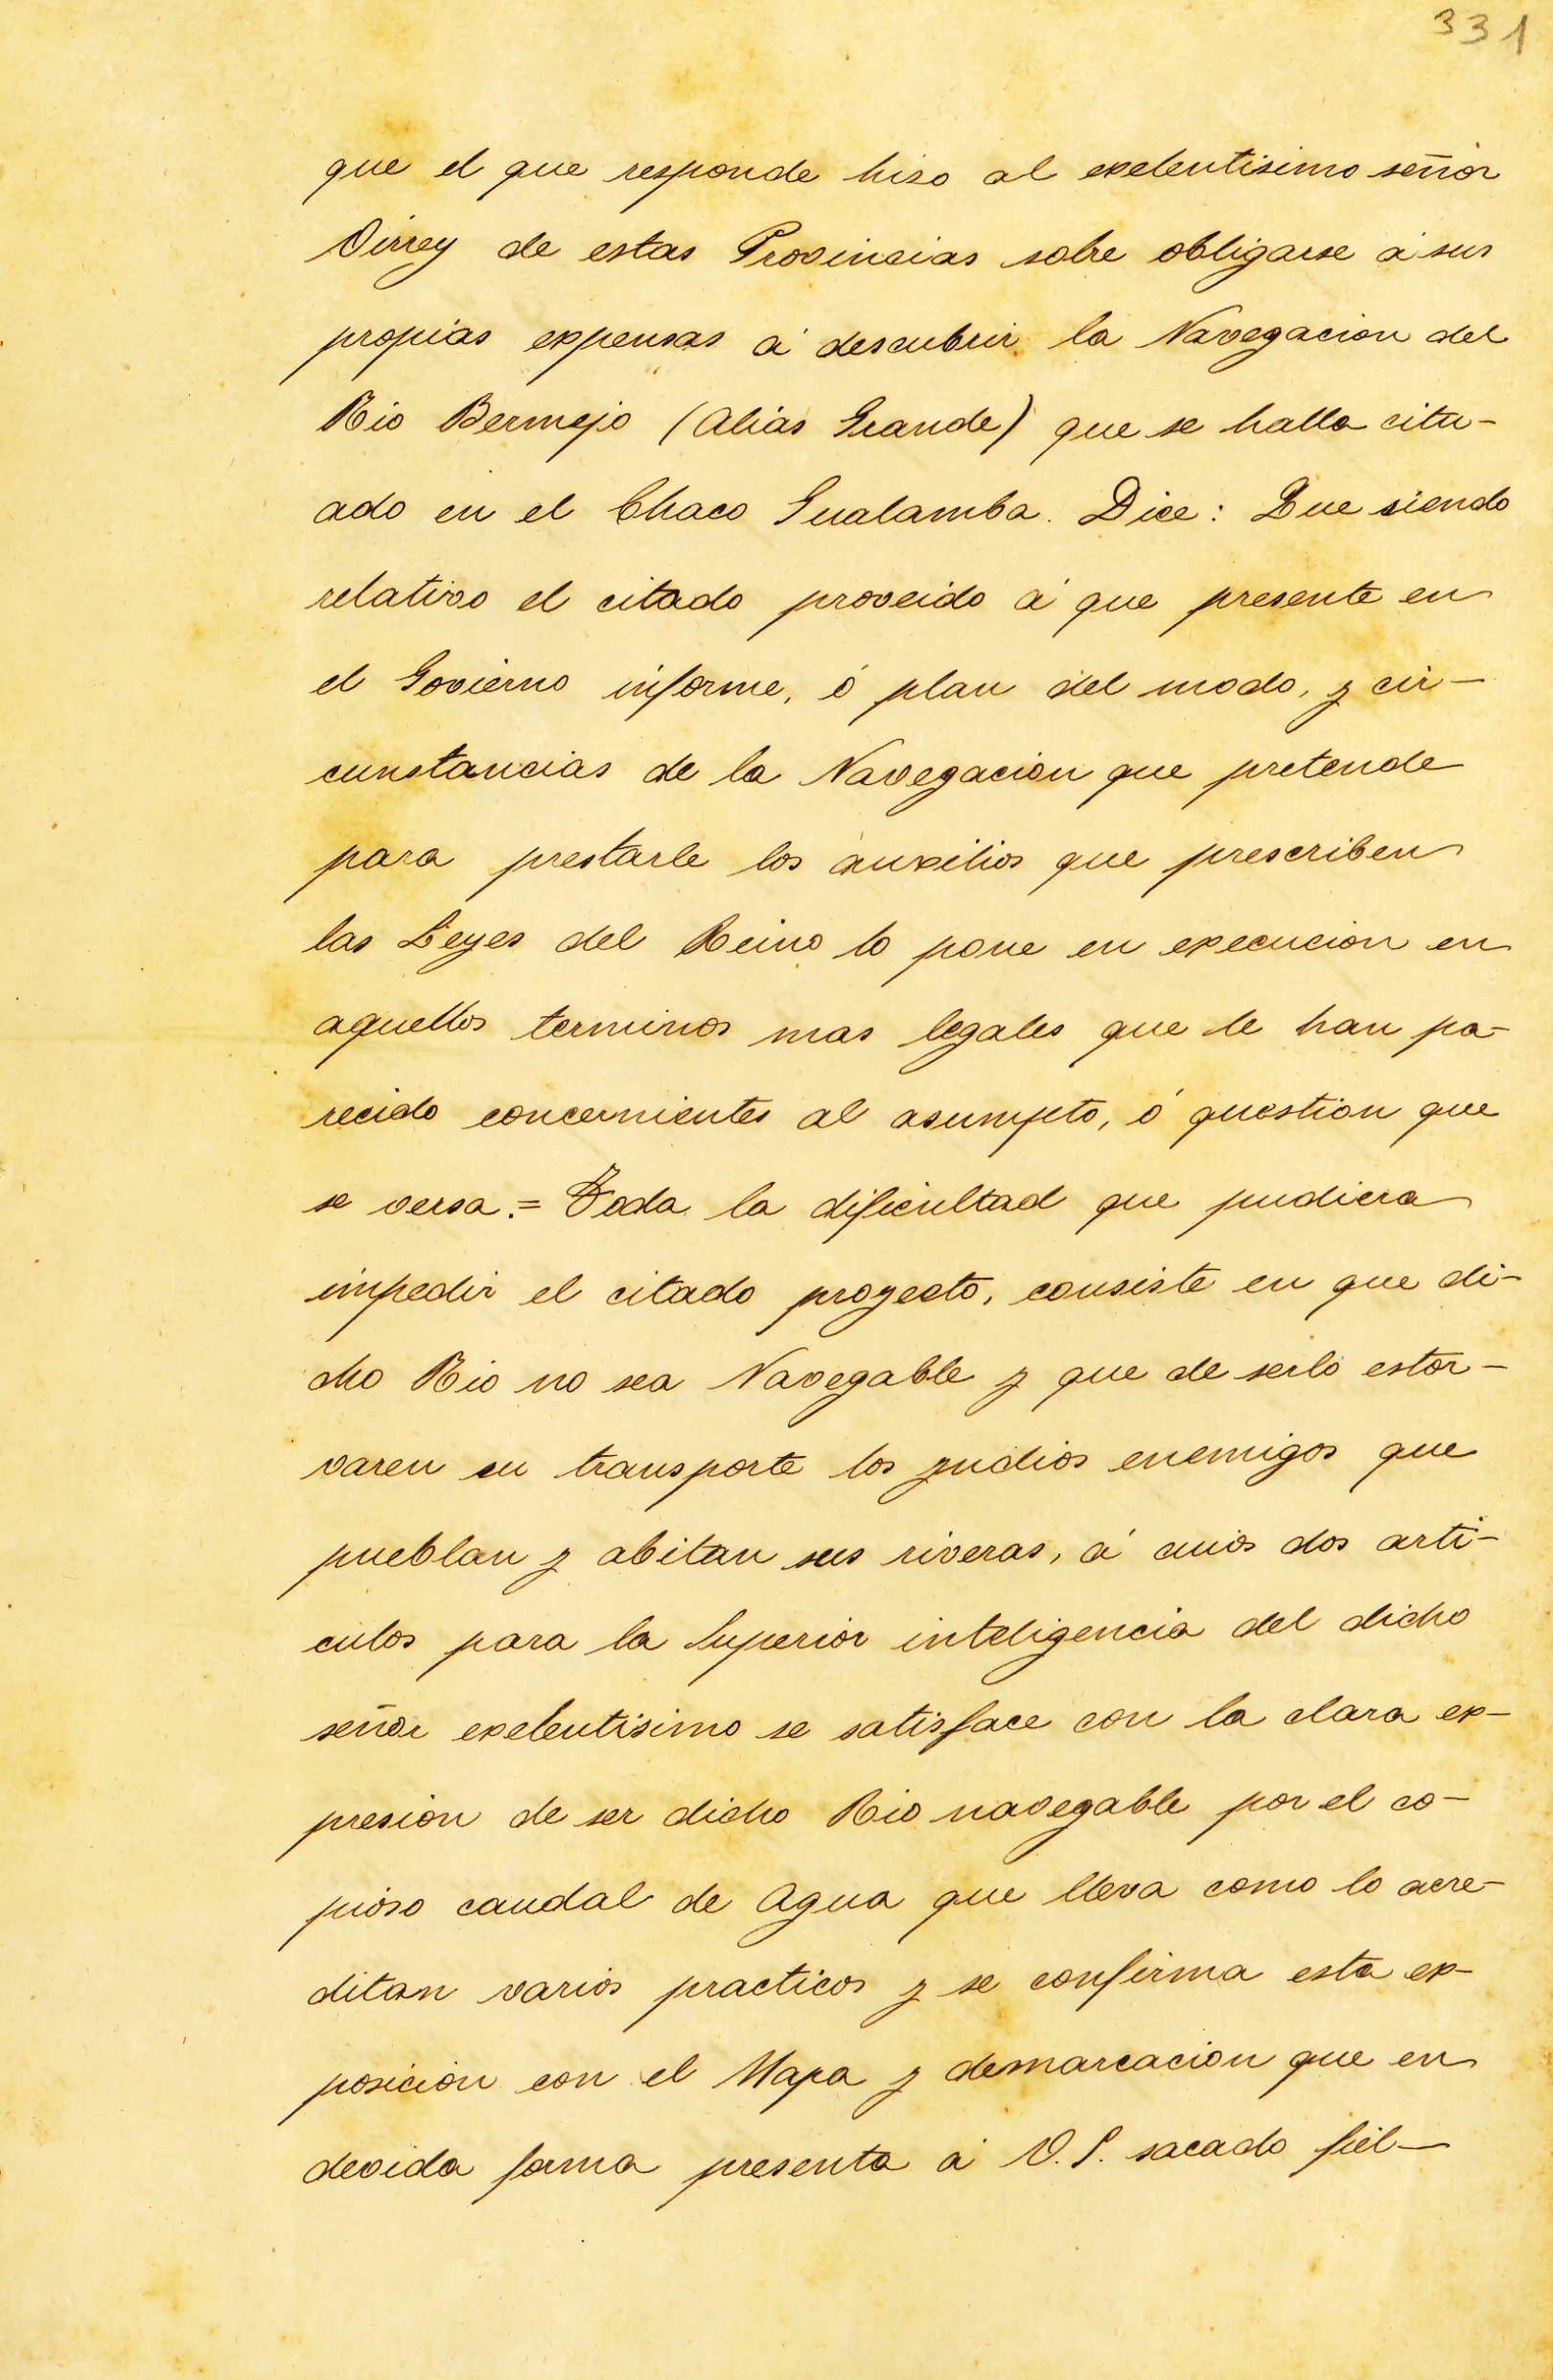 331
que el que responde hiso al exelentisimo señor
Virrey de estas Provincias sobre obligarse á sus
propias expensas á descubrir la Navegacion del
Rio Bermejo (Alias Grande) que se halla citu-
ado en el Chaco Gualamba. Dice: Que siendo
relativo el citado proveido á que presente en
el Govierno informe, ó plan del modo, y cir-
cunstancias de la Navegacion que pretende
para prestarle los auxilios que prescriben
las Leyes del Reino lo pone en execucion en
aquellos terminos mas legales que le han pa-
recido concernientes al asumpto, ó question que
se versa.= Toda la dificultad que pudiera
impedir el citado proyecto, consiste en que di-
cho Rio no sea Navegable y que de serlo estor-
varen su transporte los yndios enemigos que
pueblan y abitan sus riveras, á cuios dos arti-
culos para la Superior inteligencia del dicho
señor exelentisimo se satisface con la clara ex-
presion de ser dicho Rio navegable por el co-
pioso caudal de Agua que lleva como lo acre-
ditan varios practicos y se confirma esta ex-
posicion con el Mapa y demarcacion que en
devida forma presenta á V.S. sacado fiel-